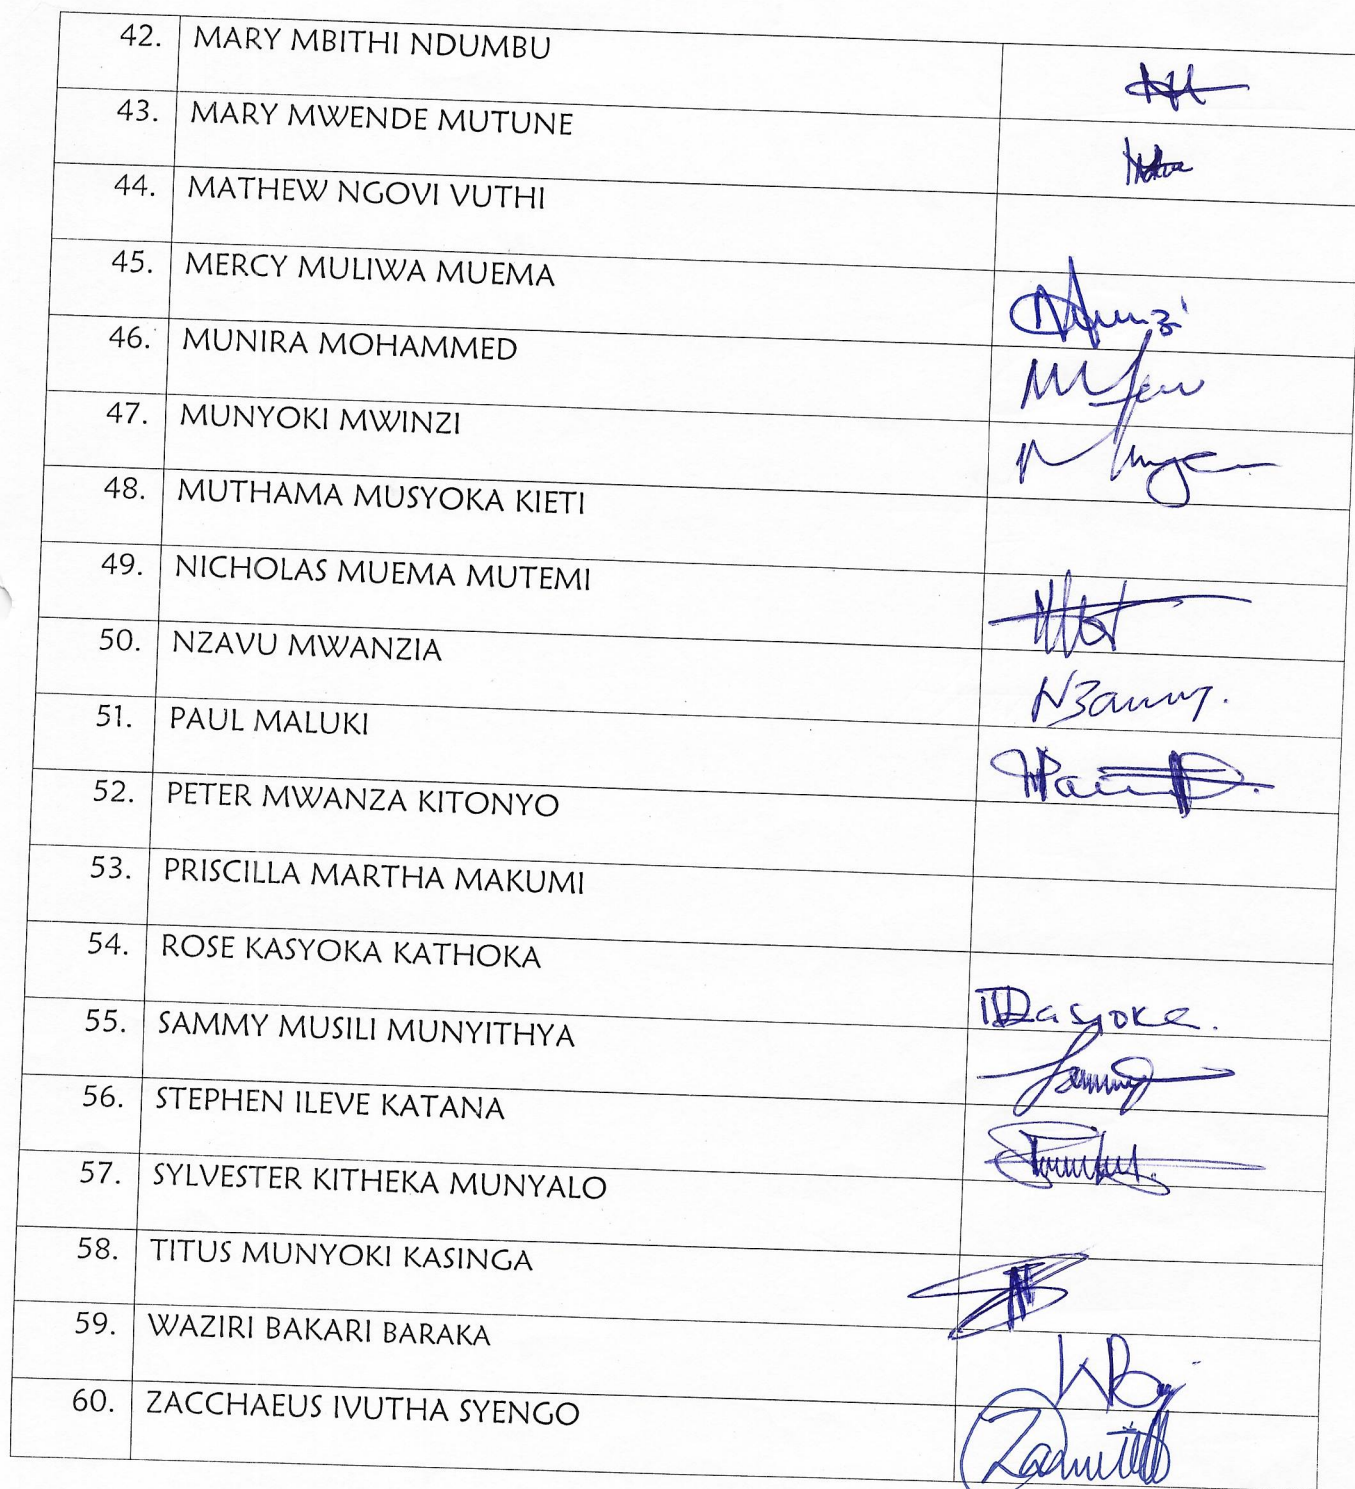 42. MARY MBITHI NDUMBU
43. MARY MWENDE MUTUNE
44. MATHEW NGOVI VUTHI
45. MERCY MULIWA MUEMA
46. MUNIRA MOHAMMED
47. MUNYOKI MWINZI
48. MUTHAMA MUSYOKA KIETI
49. NICHOLAS MUEMA MUTEMI
50. NZAVU MWANZIA
51. PAUL MALUKI
52. PETER MWANZA KITONYO
53. PRISCILLA MARTHA MAKUMI
54. ROSE KASYOKA KATHOKA
55. SAMMY MUSILI MUNYITHYA
56. STEPHEN ILEVE KATANA
57. SYLVESTER KITHEKA MUNYALO
58. TITUS MUNYOKI KASINGA
59. WAZIRI BAKARI BARAKA
60. ZACCHAEUS IVUTHA SYENGO